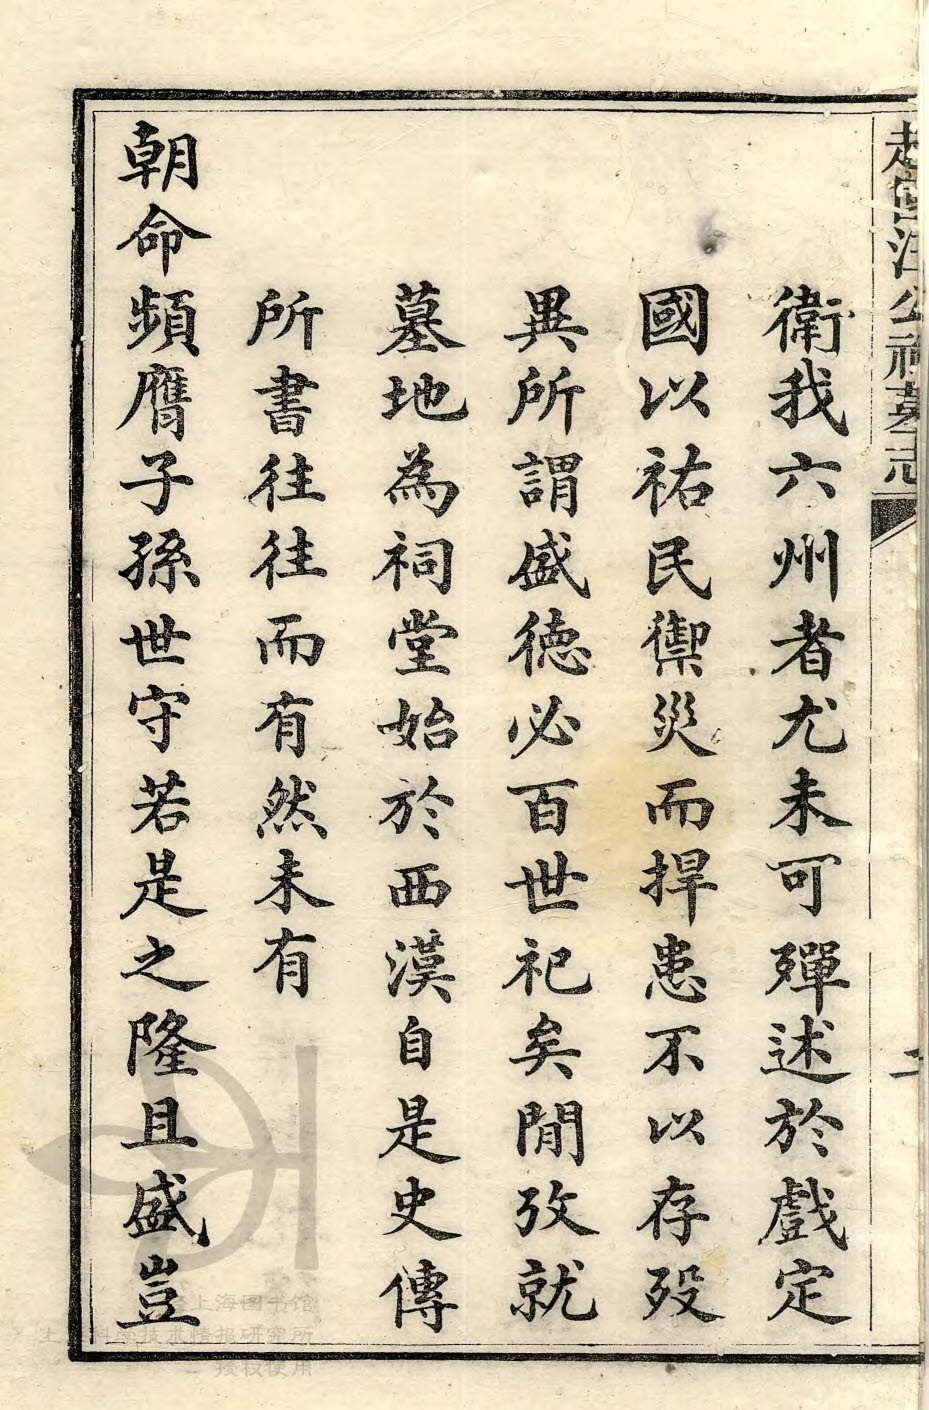 越國汪公祠墓志
衛我六州者尤未可殫述於戲定
國以祐民禦災而捍患不以存歿
異所謂盛德必百世祀矣閒攷就
墓地為祠堂始於西漢自是史傳
所書往往而有然未有
朝命頻膺子孫世守若是之隆且盛豈
上海图书馆
上海科学技术情报研究所
授权使用